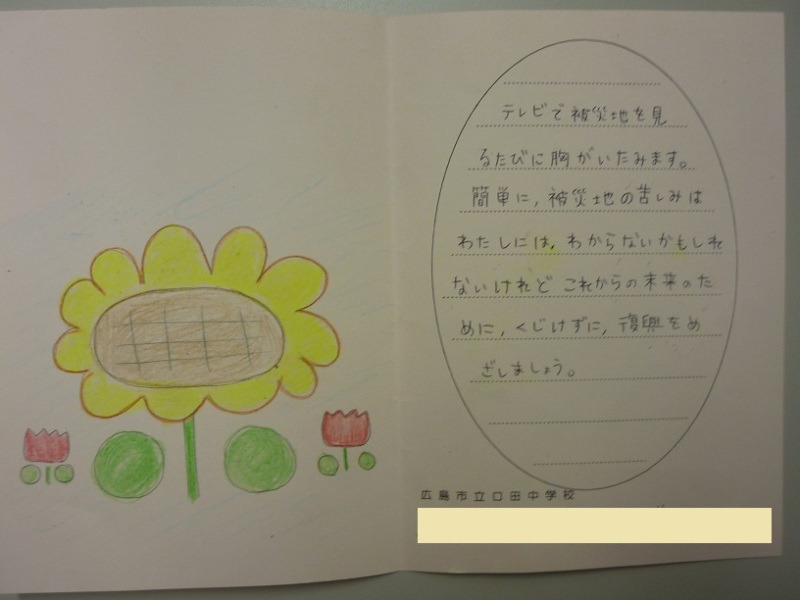 テレビで被災地を見
るたびに胸がいたみます。
簡単に,被災地の苦しみは
わたしには,わからないかもしれ
ないけれど これからの未来のた
めに,くじけずに,復興をめ
ざしましょう。
広島市立口田中学校